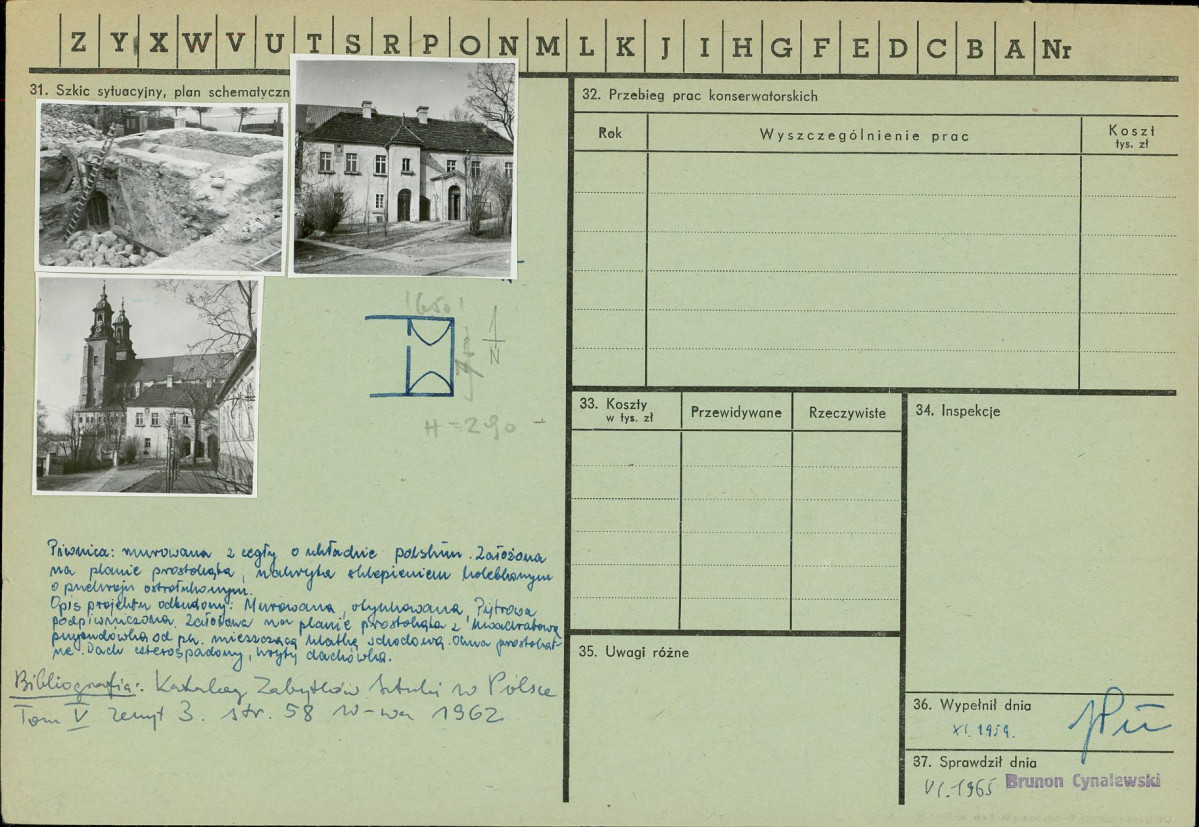 Z Y X W V U T S R P O N M L K J I H G F E D C B A Nr
31. Szkic sytuacyjny, plan schematyczn
650
N
H = 290
Piwnica: murowana z cegły o układzie polskim. Założona
na planie prostokąta, nakryta sklepieniem kolebkowym
o przekroju ostrołukowym.
Opis projektu odbudowy: Murowana, otynkowana, Piętrowa
podpiwniczona. Założona na planie prostokąta z kwadratową
przybudówką od płn. mieszczącą klatkę schodową. Okna prostokąt-
ne. Dach czterospadowy, kryty dachówką.
Bibliografia: Katalog Zabytków Sztuki w Polsce
Tom V zeszyt 3. str. 58 W-wa 1962
32. Przebieg prac konserwatorskich
Rok
Wyszczególnienie prac
Koszł
tys. zł
33. Koszty
w tys. zł
Przewidywane
Rzeczywiste
34. Inspekcje
35. Uwagi różne
36. Wypełnił dnia
XI.1959.
37. Sprawdził dnia
VI.1965 Brunon Cynalewski